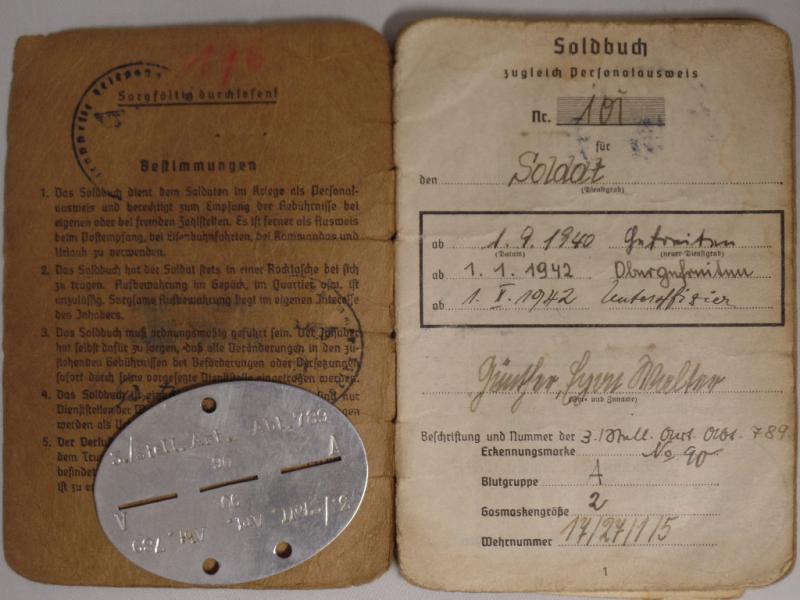 196
Sorgfältig durchlesen!
Bestimmungen
1. Das Soldbuch dient dem Soldaten im Kriege als Personal-
ausweis und berechtigt zum Empfang der Gebührnisse bei
eigenen oder bei fremden Zahlstellen. Es ist ferner als Ausweis
beim Postempfang, bei Eisenbahnfahrten, bei Kommandos und
Urlaub zu verwenden.
2. Das Soldbuch hat der Soldat stets in einer Rocktasche bei sich
zu tragen. Aufbewahrung im Gepäck, im Quartier usw. ist
unzulässig. Sorgsame Aufbewahrung liegt im eigenen Interesse
des Inhabers.
3. Das Soldbuch muß ordnungsmäßig geführt sein. Der Inhaber
hat selbst dafür zu sorgen, daß alle Veränderungen in den zu-
stehenden Gebührnissen bei Beförderungen oder Versetzungen
sofort durch seine vorgesetzte Dienststelle eingetragen werden.
4. Das Soldbuch ist eine nur
Dienststellen der
werden als
5. Der Verlu
dem Tru
befindet
ist zu e
3./Stell. Art. Abt. 789
90
A
A
90
3./Stell. Art. Abt. 789
Soldbuch
zugleich Personalausweis
Nr. 101
für
den Soldat
(Dienstgrad)
ab 1.9.1940 Gefreiten
(Datum) (neuer Dienstgrad)
ab 1.1.1942 Obergefreiten
ab 1.X.1942 Unteroffizier
Günther, Egon Walter
(Vor- und Zuname)
Beschriftung und Nummer der 3./Stell. Art. Abt. 789.
Erkennungsmarke No 90
Blutgruppe A
Gasmaskengröße 2
Wehrnummer 17/27/1/5
1